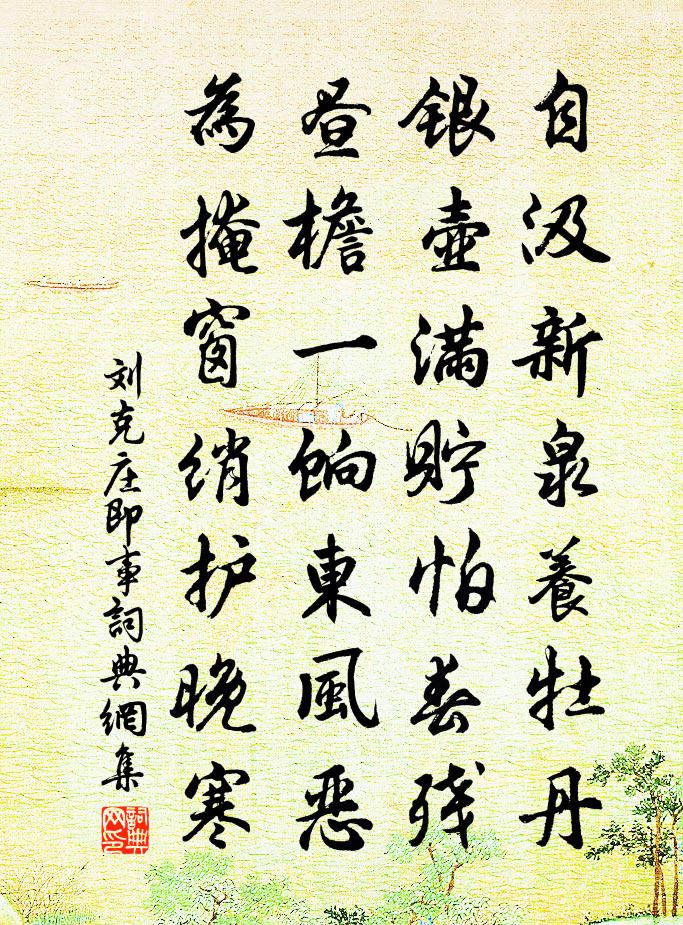 自汲新泉養牡丹
銀壺滿貯怕春残
昼檐一餉東風恶
為掩窗綃护晚寒
刘克庄即事詞典網集
詞典网印